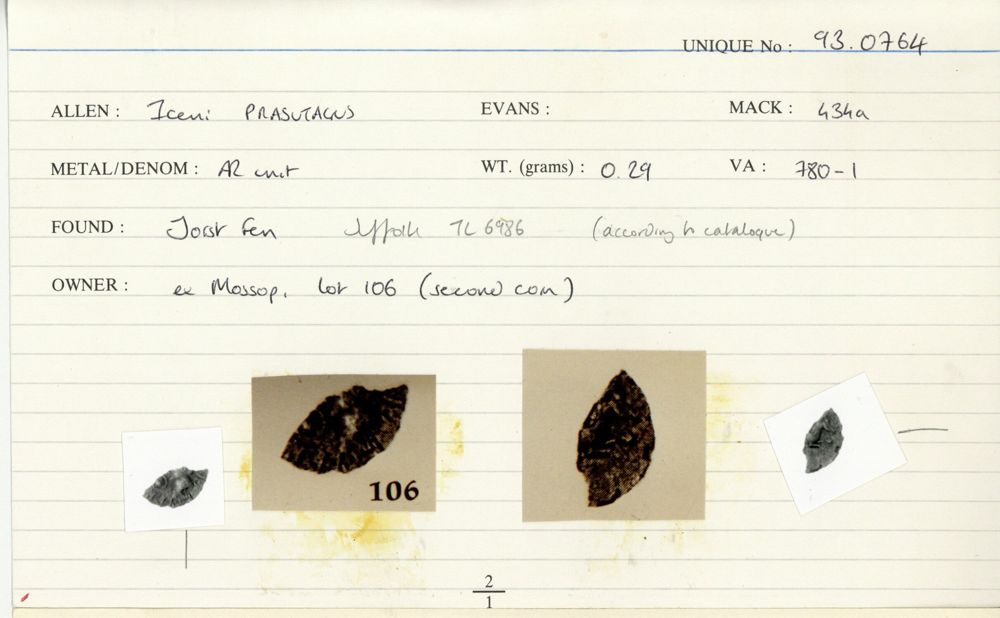 UNIQUE No : 93.0764
ALLEN : Iceni PRASUTAGUS EVANS : MACK : 434a
METAL/DENOM : AR unit WT. (grams) : 0.29 VA : 780-1
FOUND : Joist Fen Suffolk TL 6986 (according to catalogue)
OWNER : ex Mossop, lot 106 (second coin)
106
2
1